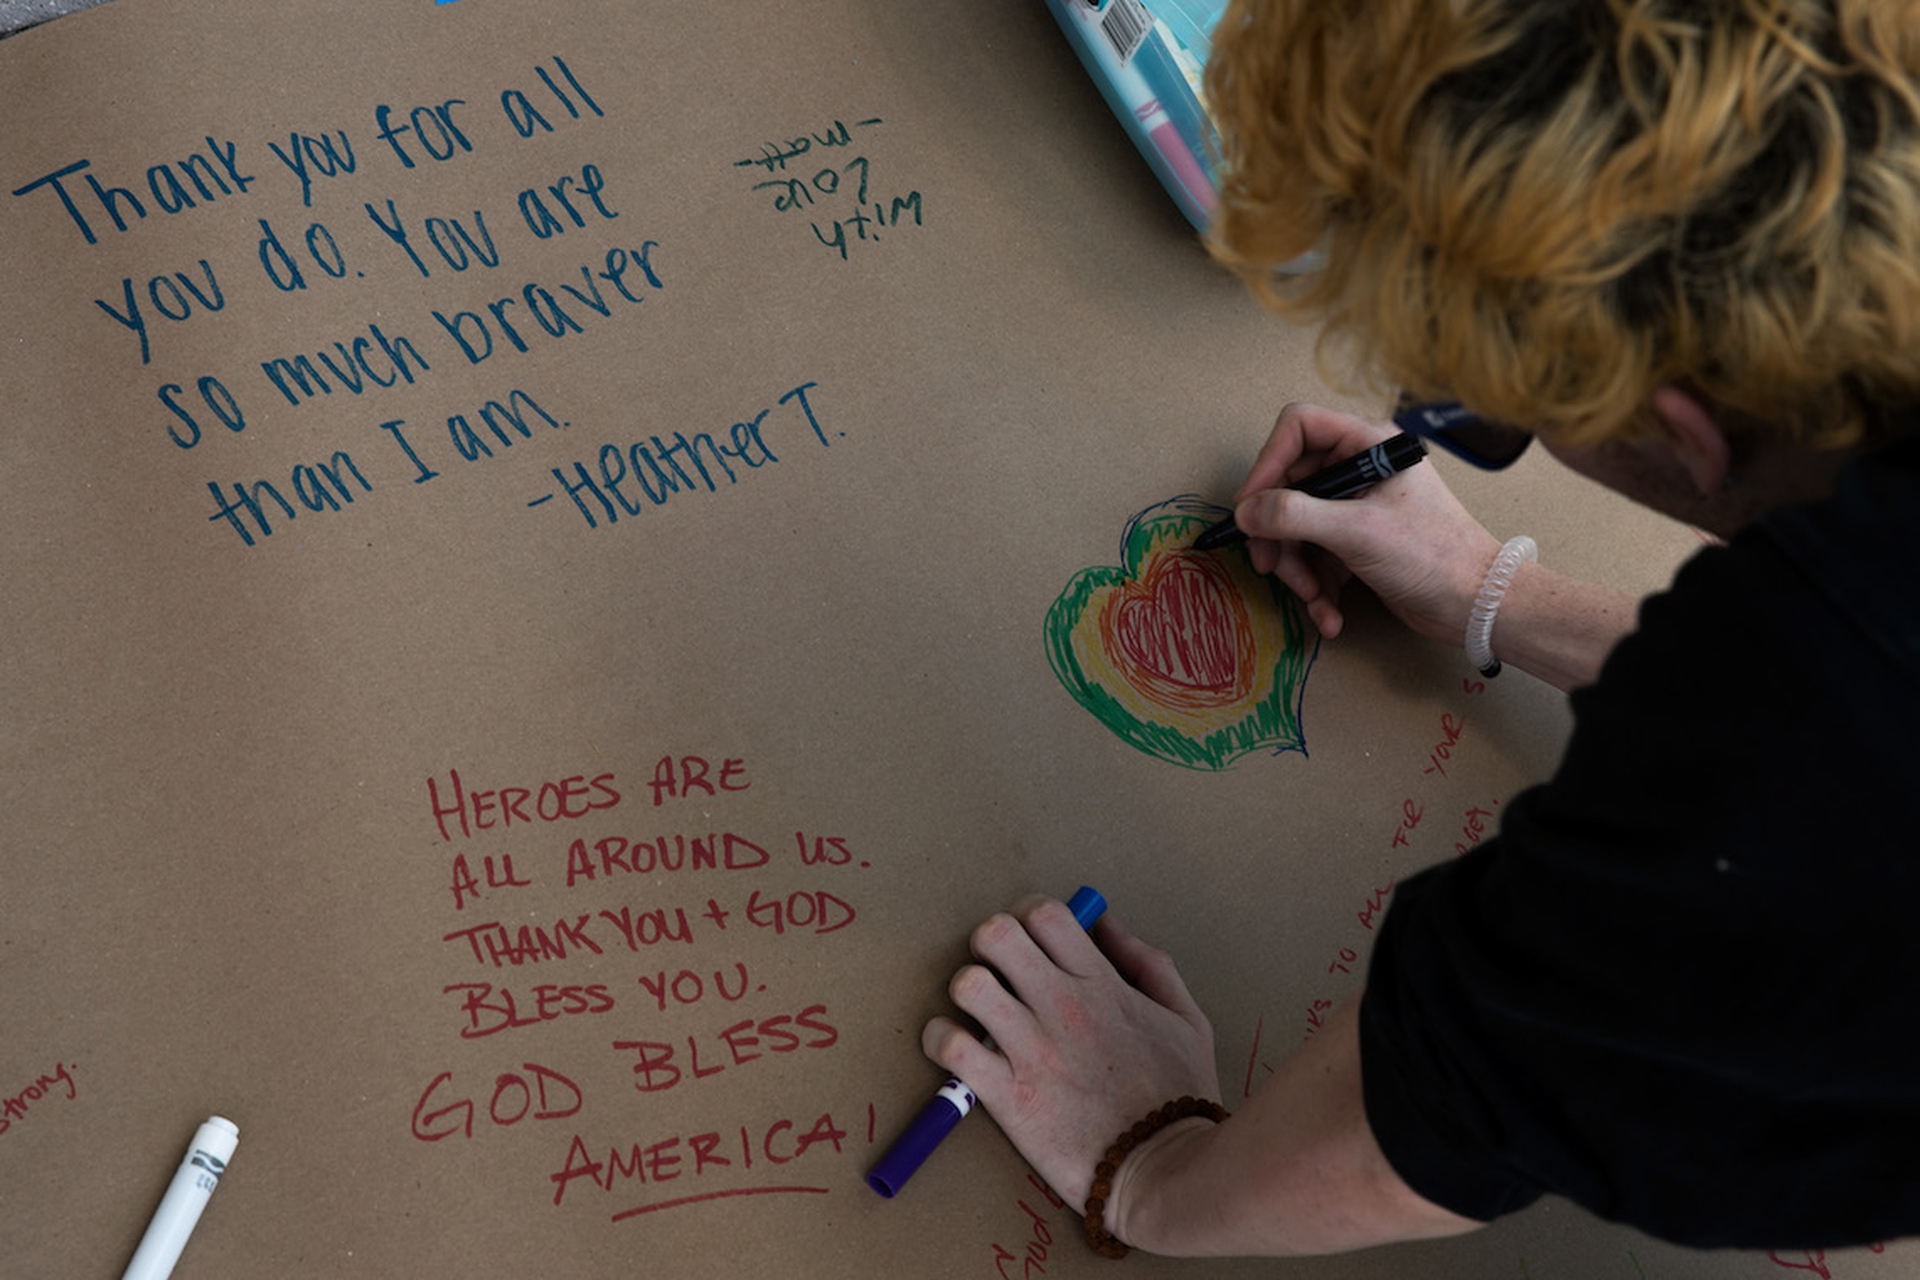 Thank you for all
you do. You are
so much braver
than I am.
-Heather T.
With
Love
-matt-
HEROES ARE
ALL AROUND US.
THANK YOU + GOD
BLESS YOU.
GOD BLESS
AMERICA!
TO ALL FOR YOUR
strong.